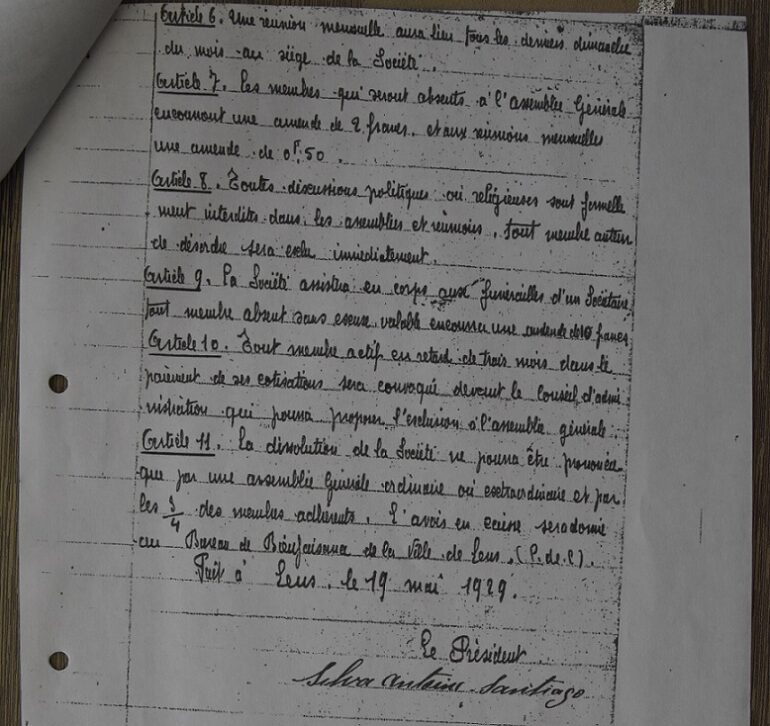 Article 6. Une réunion mensuelle aura lieu tous les derniers dimanche
du mois au siège de la Société.
Article 7. Les membres qui seront absents à l'assemblée Générale
encourront une amende de 2 francs et aux réunions mensuelles
une amende de 0F.50.
Article 8. Toutes discussions politiques ou religieuses sont formelle
ment interdites dans les assemblées et réunions. Tout membre auteur
de désordre sera exclu immédiatement.
Article 9. La Société assistera en corps aux funérailles d'un Sociétaire
tout membre absent sans excuse valable encourra une amende de francs
Article 10. Tout membre actif en retard de trois mois dans le
paiement de ses cotisations sera convoqué devant le Conseil d'admi
nistration qui pourra proposer l'exclusion à l'assemblée générale.
Article 11. La dissolution de la Société ne pourra être prononcée
que par une assemblée Générale ordinaire ou extraordinaire et par
les 3/4 des membres adhérents. L'avois en caisse sera donné
au Bureau de Bienfaisance de la Ville de Lens. (P. de C).
Fait à Lens, le 19 mai 1929.
Le Président
Silva Antoine Santiago